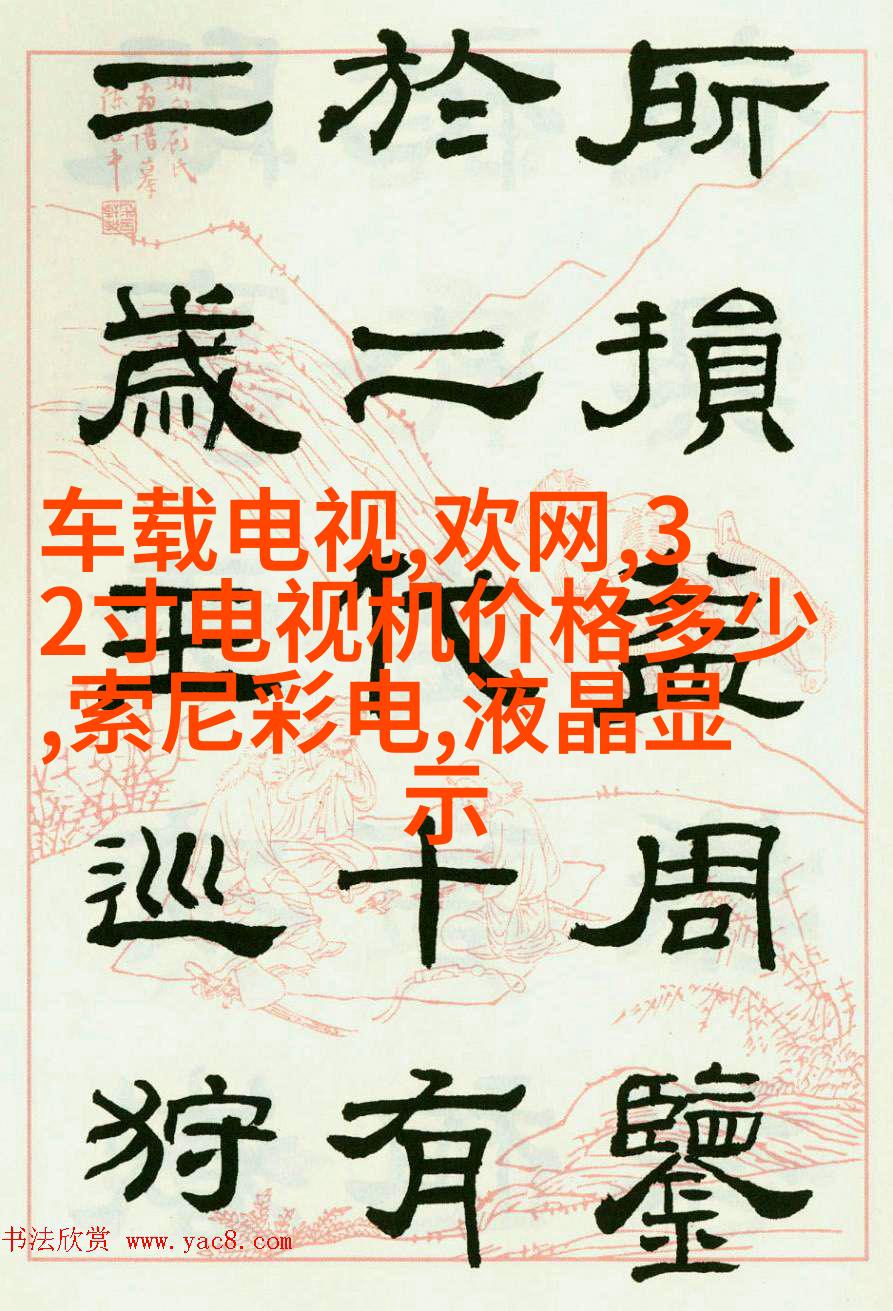 所損益周鑒
於二代十有
二歲王巡狩
车载电视,欢网,3
2寸电视机价格多少
,索尼彩电,液晶显
示
书法欣赏 www.yac8.com